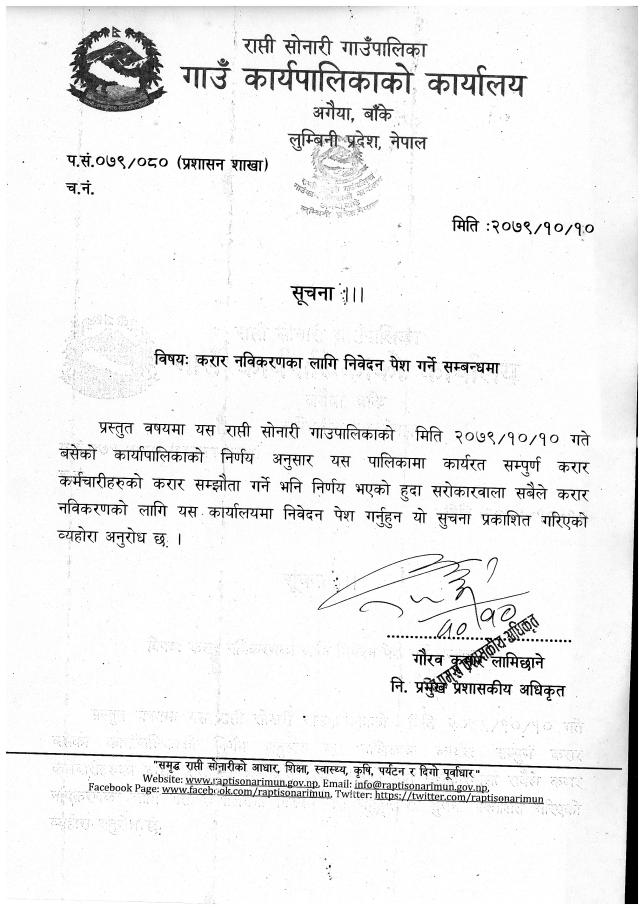 राप्ती सोनारी गाउँपालिका
गाउँ कार्यपालिकाको कार्यालय
अगैया, बाँके
लुम्बिनी प्रदेश, नेपाल
प.सं.०७९/०८० (प्रशासन शाखा)
च.नं.
मिति :२०७९/१०/१०
सूचना ।।।
विषयः करार नविकरणका लागि निवेदन पेश गर्ने सम्बन्धमा
प्रस्तुत वषयमा यस राप्ती सोनारी गाउपालिकाको मिति २०७९/१०/१० गते
बसेको कार्यापालिकाको निर्णय अनुसार यस पालिकामा कार्यरत सम्पुर्ण करार
कर्मचारीहरुको करार सम्झौता गर्ने भनि निर्णय भएको हुदा सरोकारवाला सबैले करार
नविकरणको लागि यस कार्यालयमा निवेदन पेश गर्नुहुन यो सुचना प्रकाशित गरिएको
व्यहोरा अनुरोध छ ।
१०/१०
गौरव कुमार लामिछाने
नि. प्रमुख प्रशासकीय अधिकृत
"समृद्ध राप्ती सोनारीको आधार, शिक्षा, स्वास्थ्य, कृषि, पर्यटन र दिगो पूर्वाधार"
Website: www.raptisonarimun.gov.np, Email: info@raptisonarimun.gov.np,
Facebook Page: www.facebook.com/raptisonarimun, Twitter: https://twitter.com/raptisonarimun